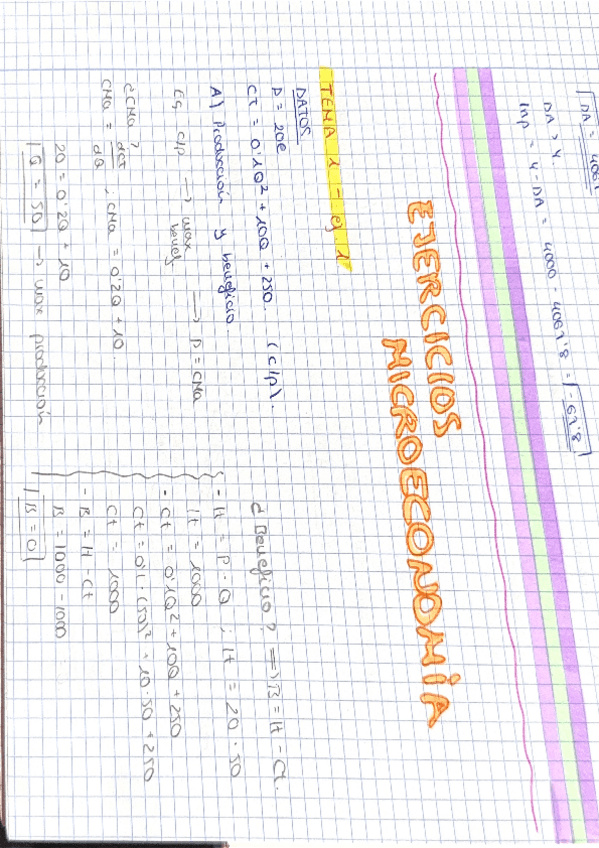 DA = 4067
DA > Y.
Inp = Y - DA = 4000 - 4067'8 = -67'8
EJERCICIOS
MICROECONOMÍA
TEMA 1 - ej. 1
DATOS
P = 20€
CT = 0'1Q² + 10Q + 250. (c/p).
A) Producción y beneficio.
Eq c/p → max benef → P = CMa
¿CMa?
CMa = dCT/dQ, CMa = 0'2Q + 10.
20 = 0'2Q + 10
Q = 50 → max producción
¿Beneficio? ⟹ B = It - Ct.
- It = P · Q ; It = 20 · 50
It = 1000
- Ct = 0'1Q² + 10Q + 250
Ct = 0'1 · (50)² + 10 · 50 + 250
Ct = 1000
- B = It - Ct
B = 1000 - 1000
B = 0